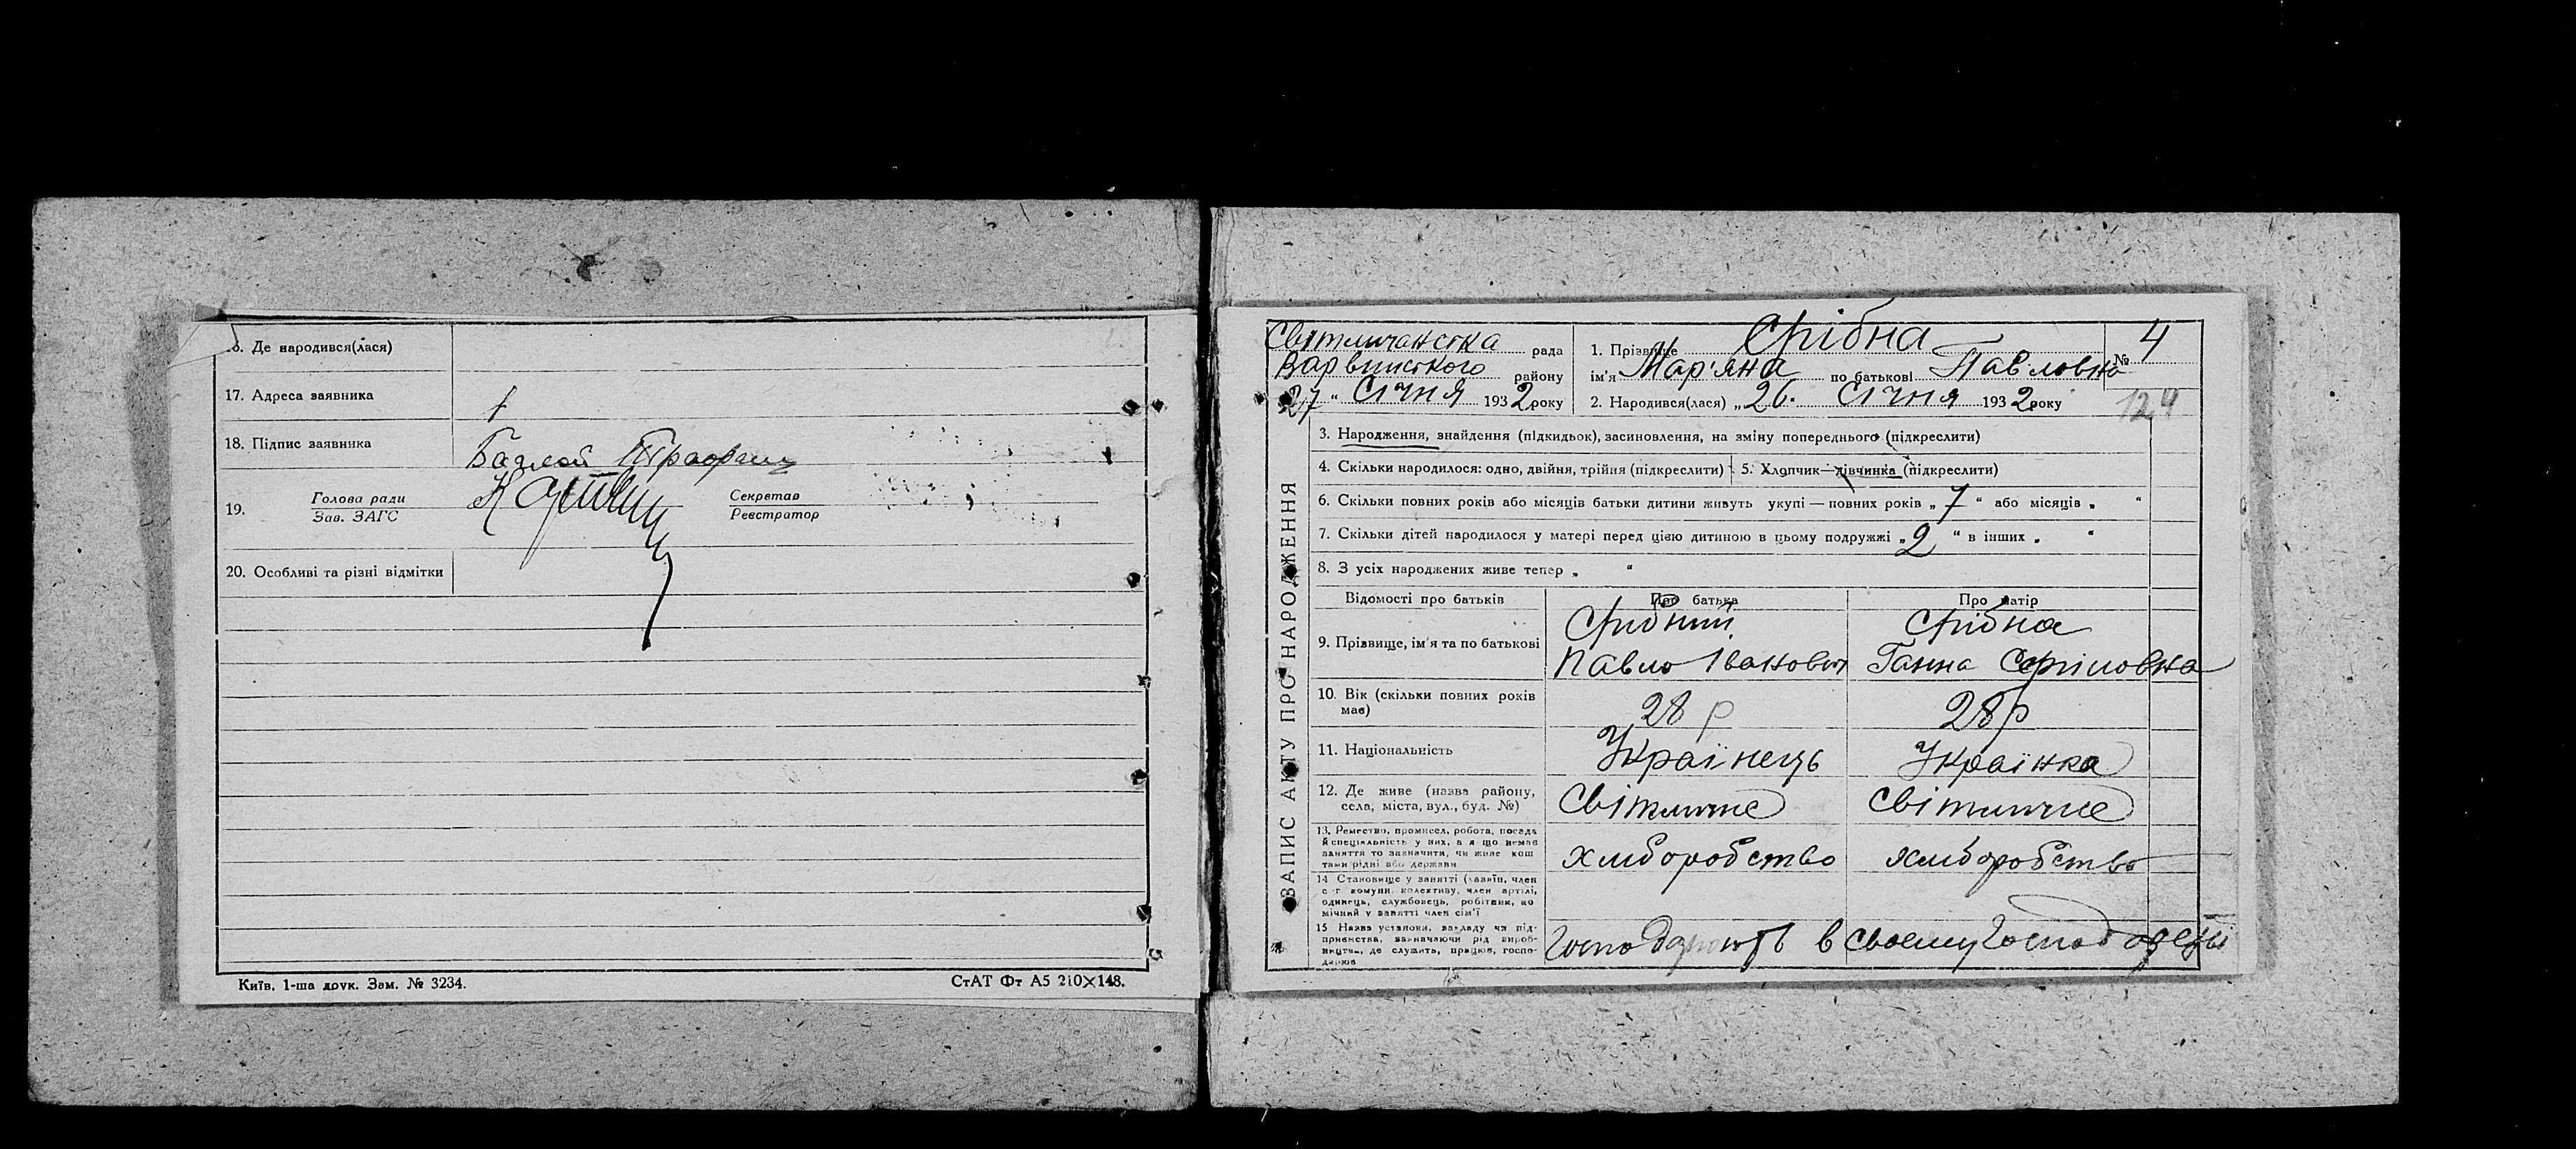 16. Де народився(лася)
17. Адреса заявника
18. Підпис заявника
19. Голова ради
Зав. ЗАГС
Секретар
Реєстратор
20. Особливі та різні відмітки
Київ. 1-ша друк. Зам. № 3234.
СтАТ Фт А5 210×148.
ЗАПИС АКТУ ПРО НАРОДЖЕННЯ
Світличанська рада
Варвинського району
"27" Січня 1932 року
1. Прізвище Срібна
ім'я Мар'яна по батькові Павловна
№ 4
2. Народився(лася) „26. Січня 1932 року
124
3. Народження, знайдення (підкидьок), засиновлення, на зміну попереднього (підкреслити)
4. Скільки народилося: одно, двійня, трійня (підкреслити)
5. Хлопчик—дівчинка (підкреслити)
6. Скільки повних років або місяців батьки дитини живуть укупі — повних років „7" або місяців „ "
7. Скільки дітей народилося у матері перед цією дитиною в цьому подружжі „2" в інших „ "
8. З усіх народжених живе тепер „ "
Відомості про батьків
Про батька
Про матір
9. Прізвище, ім'я та по батькові
Срібний
Павло Іванович
Срібна
Ганна
10. Вік (скільки повних років має)
28 р
28 р
11. Національність
Українець
Українка
12. Де живе (назва району,
села, міста, вул., буд. №)
Світличне
Світличне
13. Ремество, промисел, робота, посада
й спеціяльність у них, а якщо немає
заняття то зазначити, чи живе кош
тами рідні або держави
хліборобство
хліборобство
14 Становище у занятті (хазяїн, член
с.-г. комуни, колективу, член артілі,
одинець, службовець, робітник, по
мічний у занятті член сім'ї
15 Назва установи, закладу чи під-
приємства, зазначаючи рід вироб-
ництва, де служить, працює, госпо-
дарює
в своєму